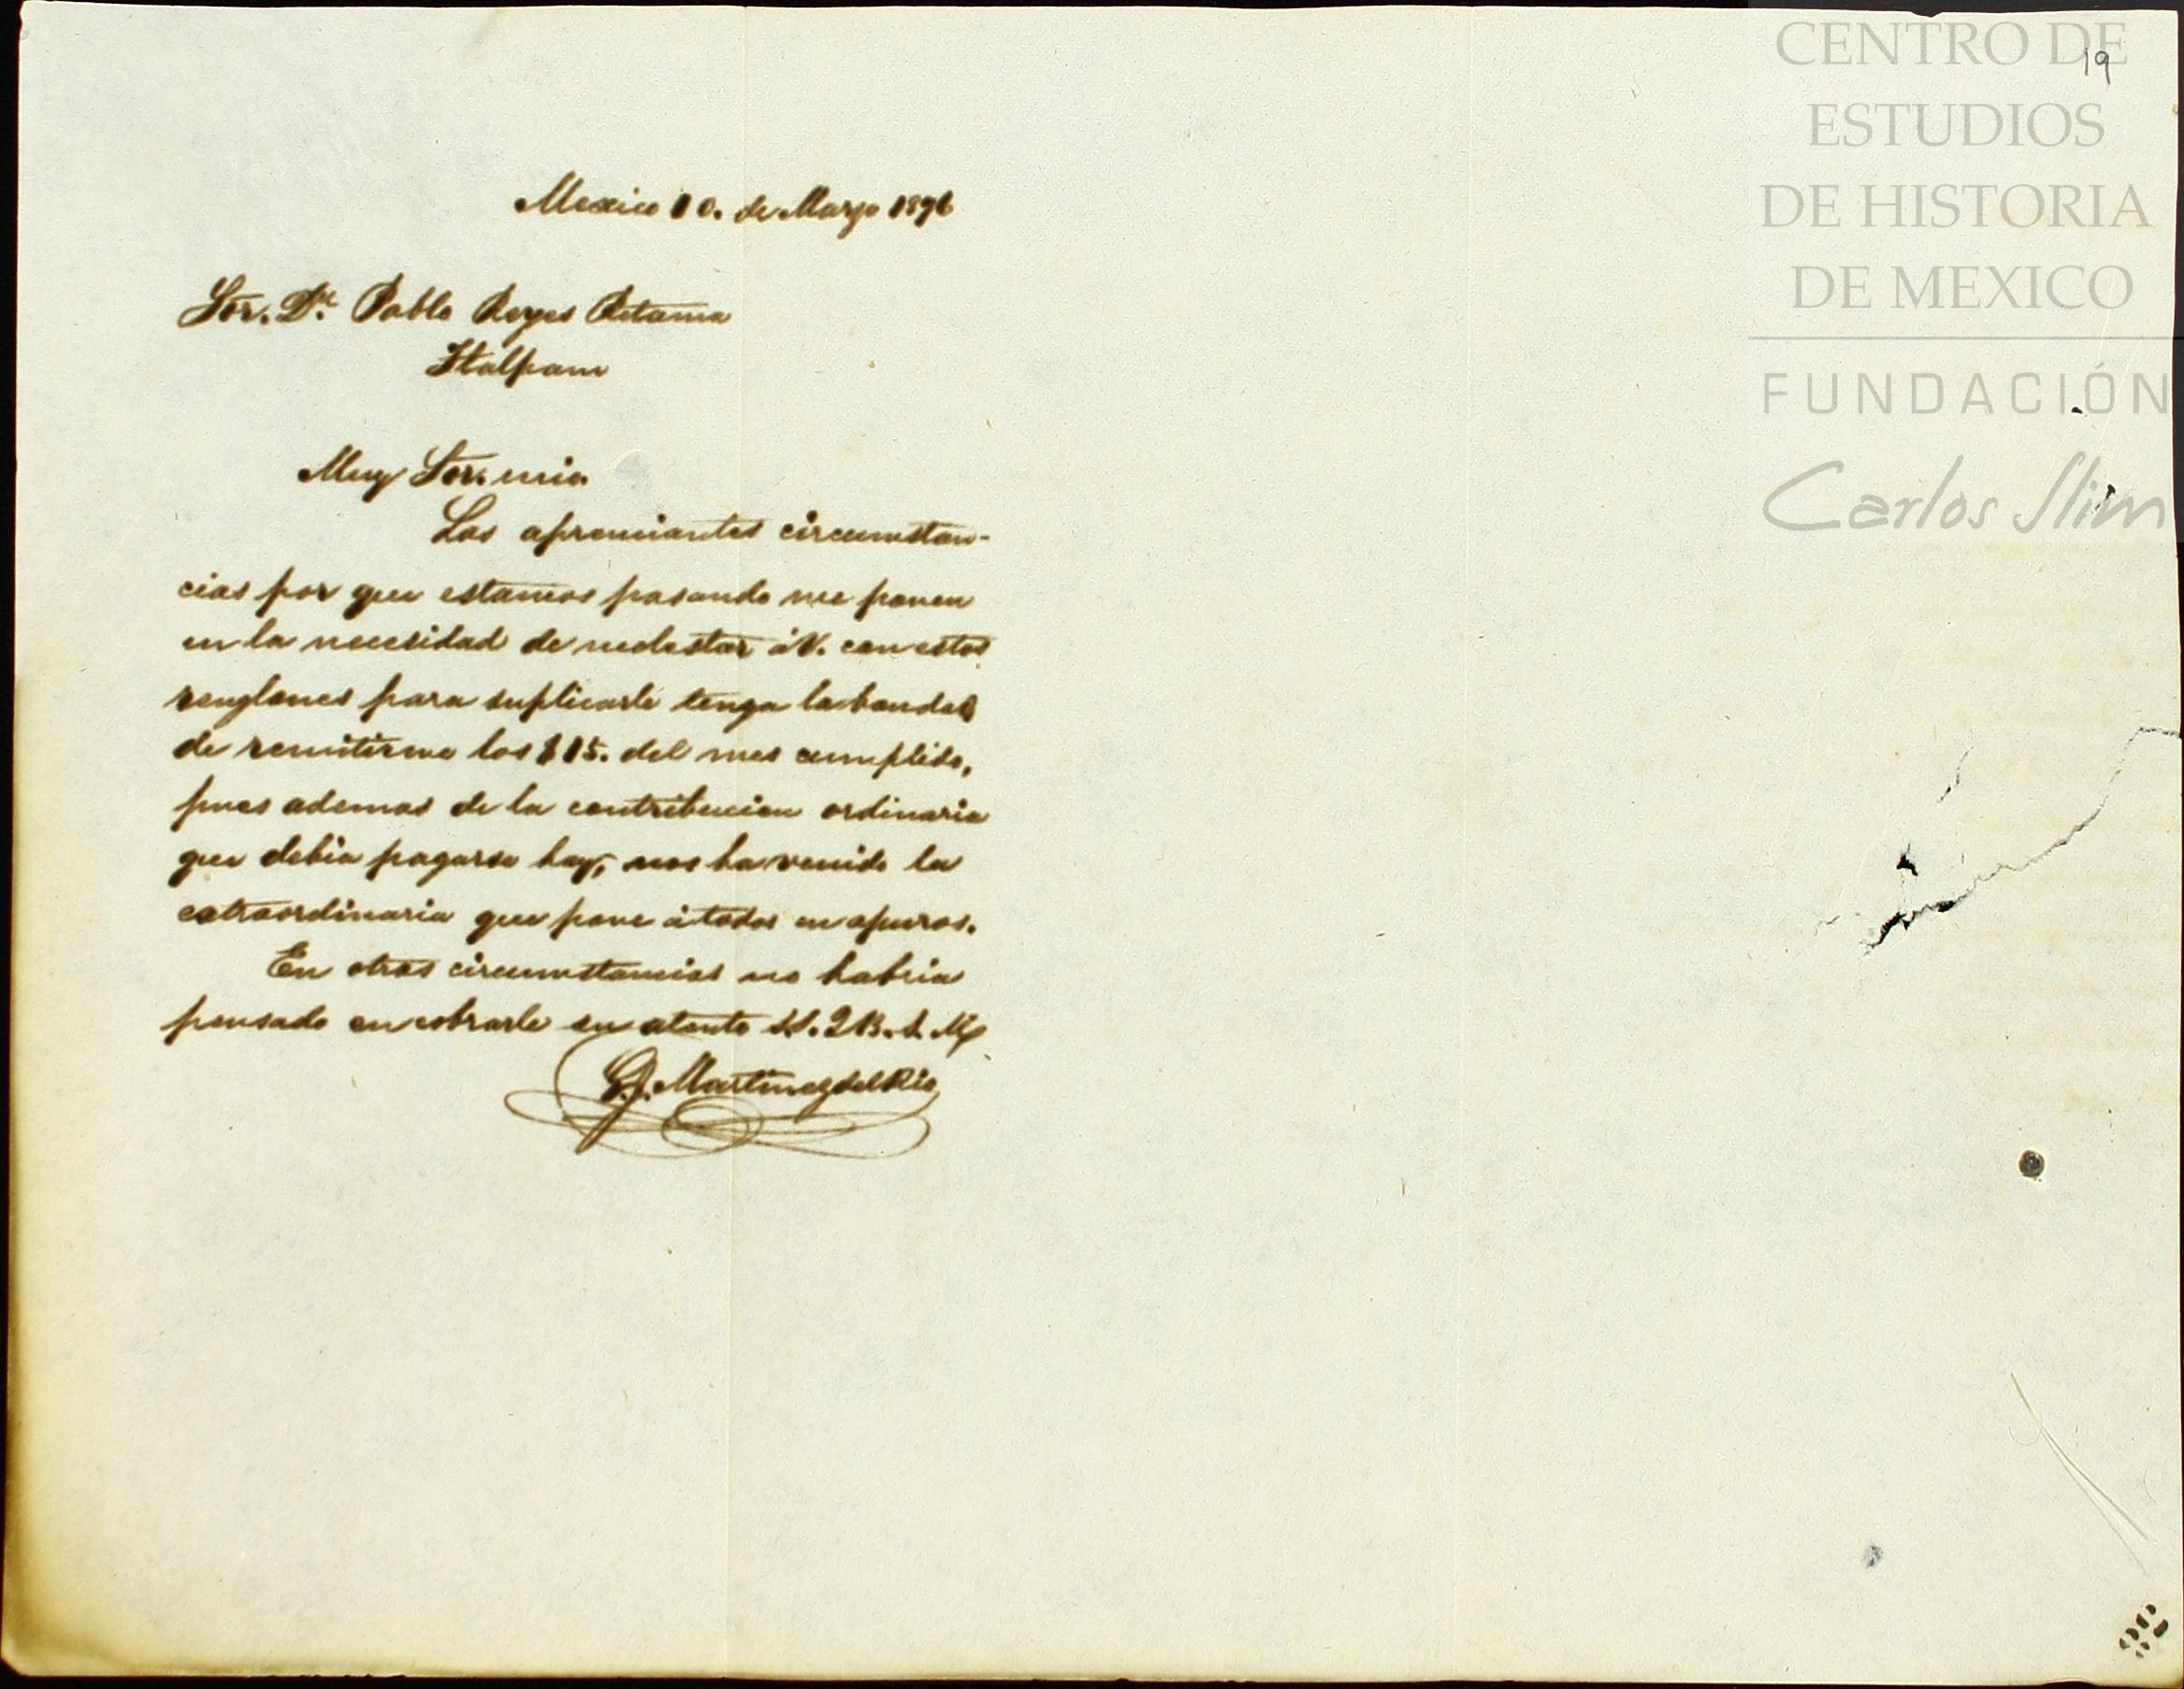 19
CENTRO DE
ESTUDIOS
DE HISTORIA
DE MEXICO
FUNDACIÓN
Carlos Slim
Mexico 10. de Marzo 1876
Sor. Dn. Pablo Reyes Retama
Tlalpam
Muy Sor. mio.
Las apremiantes circumstan-
cias por que estamos pasando me ponen
en la necesidad de molestar á V. con estos
renglones para suplicarle tenga la bondad
de remitirme los $15. del mes cumplido,
pues ademas de la contribucion ordinaria
que debia pagarse hoy, nos ha venido la
extraordinaria que pone á todos en apuros.
En otras circumstancias no habria
pensado en cobrarle su atento S.S. Q B. S. M
Martinez del Rio